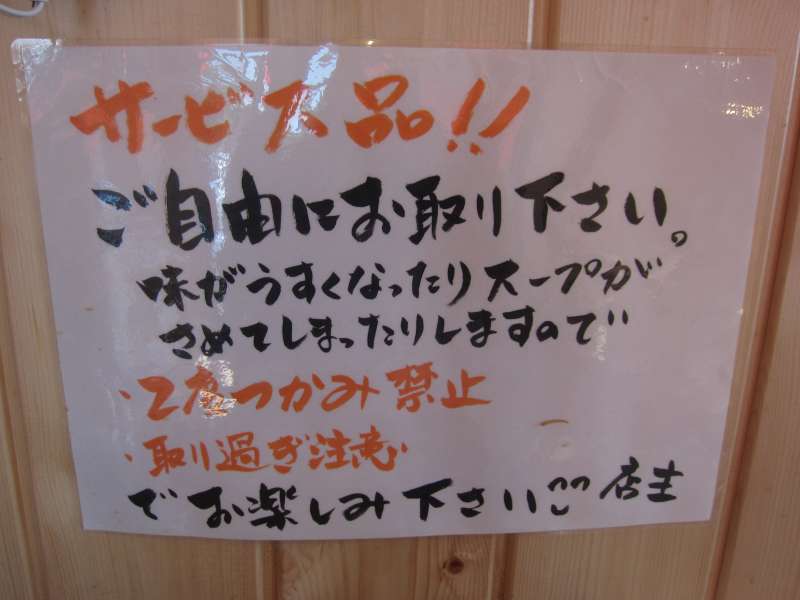 サービス品!!
ご自由にお取り下さい。
味がうすくなったりスープが
さめてしまったりしますので
・2度つかみ禁止
・取り過ぎ注意
でお楽しみ下さい 店主